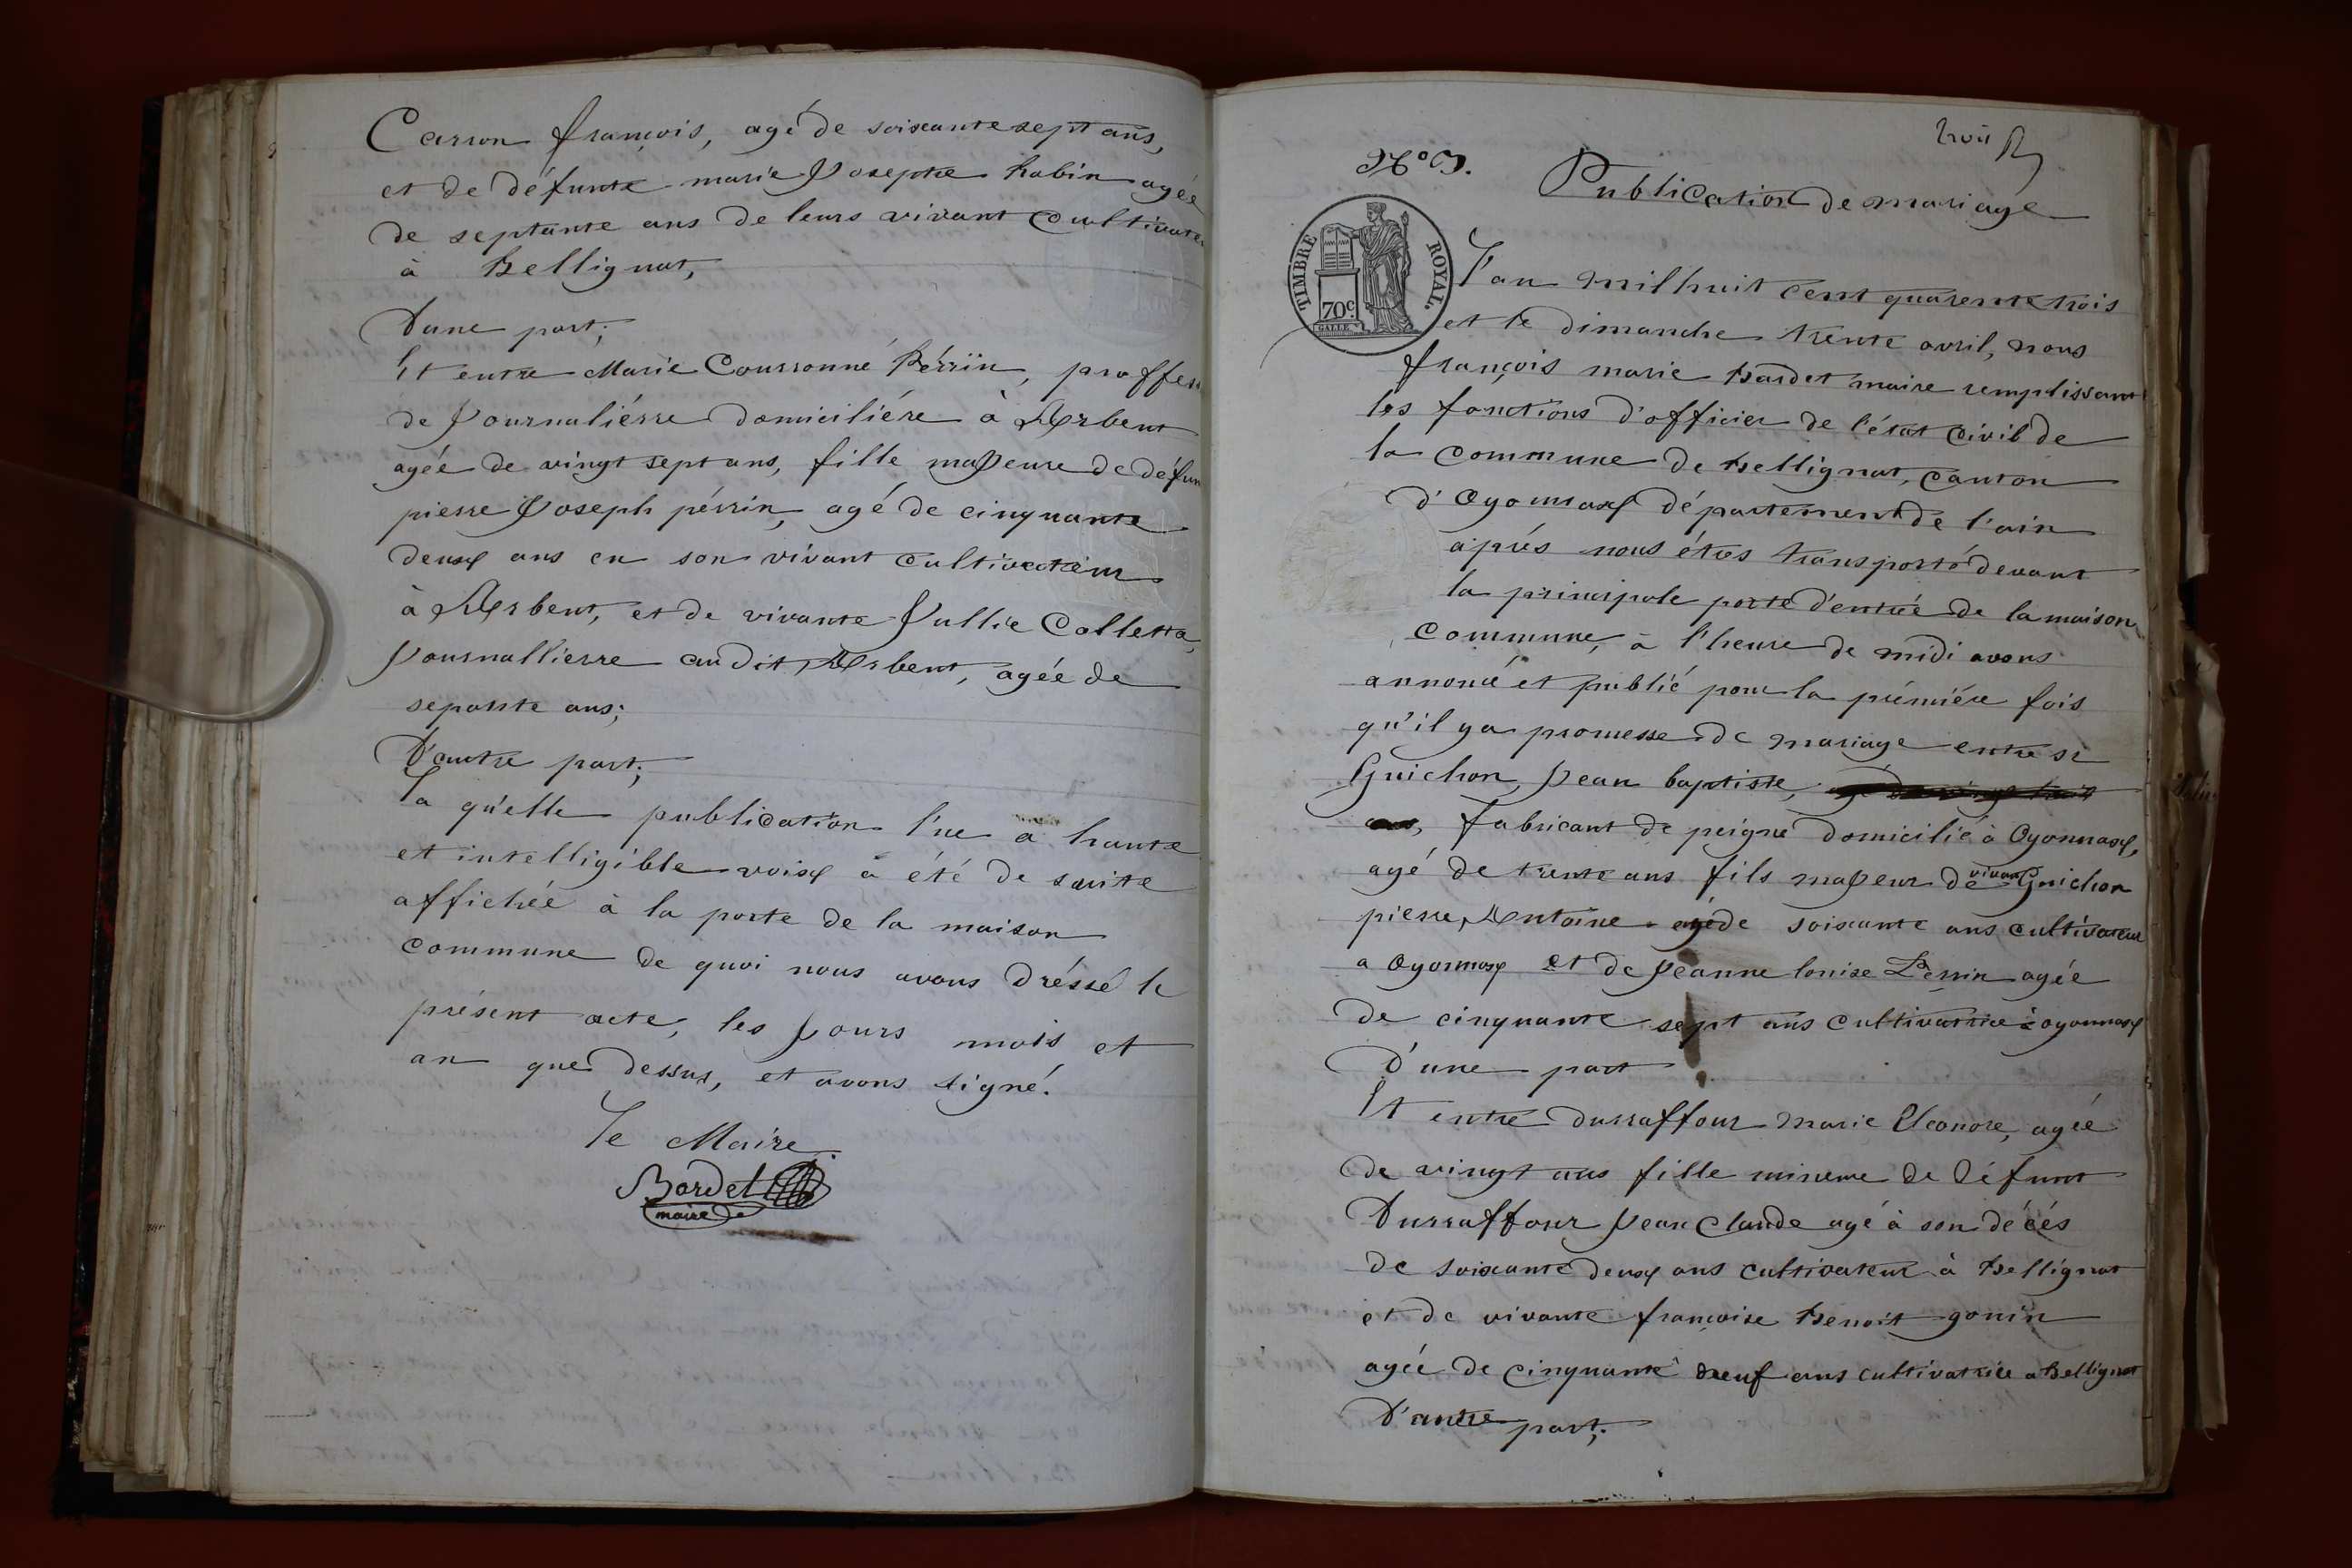 Carron françois, agé de soixante sept ans,
et de défunte marie Josephe Robin agée
de septante ans de leurs vivant Cultivate
à Bellignat,
D'une part;
Et entre Marie Couronné Pérrin, proffes
de Journaliérre domiciliére à Arbent
agée de vingt sept ans, fille majeure de défun
pierre Joseph pérrin, agé de cinquante
deux ans en son vivant cultivateur
à Arbent, et de vivante Jullie Colletta,
Journallierre audit Arbent, agée de
ans;
D'autre part;
La qu'elle publication lue a haute
et intelligible voix a été de suite
affichée à la porte de la maison
commune de quoi nous avons dréssé le
présent acte, les jours mois et
an que dessus, et avons signé.
Le Maire
Bardet
maire
trois
N° 3. Publication de mariage
TIMBRE ROYAL.
70c.
GALLE
L'an mil huit cent quarente trois
et le dimanche trente avril, nous
françois marie Bardet maire remplissant
les fonctions d'officier de l'état civil de
la commune de Bellignat, canton
d'Oyonnax département de l'ain
aprés nous étres transporté devant
la principale porte d'entrée de la maison
commune, à l'heure de midi avons
annoncé et publié pour la prémiére fois
qu'il y a promesse de mariage entre sr
Guichon Jean baptiste,
fabricant de peigne domicilié à Oyonnax,
agé de trente ans fils majeur de vivant Guichon
pierre Antoine agé de soixante ans cultivateur
a Oyonnax et de Jeanne louise Perrin agée
de cinquante sept ans cultivatrice à oyonnax
D'une part
Et entre durraffour marie Eleonore, agée
de vingt ans fille mineure de défunt
Durraffour Jean Claude agé à son décés
de soixante deux ans cultivateur à Bellignat
et de vivante françoise Benoit gonin
agée de cinquante neuf ans cultivatrice a Bellignat
D'autre part;